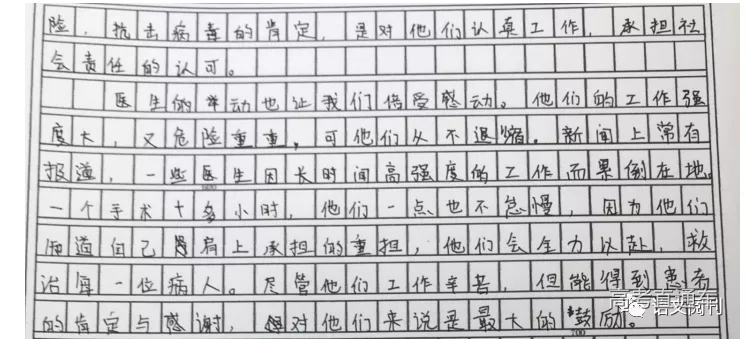 险，抗击病毒的肯定，是对他们认真工作，承担社
会责任的认可。
医生的举动也让我们倍受感动。他们的工作强
度大，又危险重重，可他们从不退缩。新闻上常有
报道，一些医生因长时间高强度的工作而累倒在地。
600
一个手术十多小时，他们一点也不怠慢，因为他们
知道自己肩上承担的重担，他们会全力以赴，救
治每一位病人。尽管他们工作辛苦，但能得到患者
的肯定与感谢，对他们来说是最大的鼓励。
700
高考直通车
语文报刊